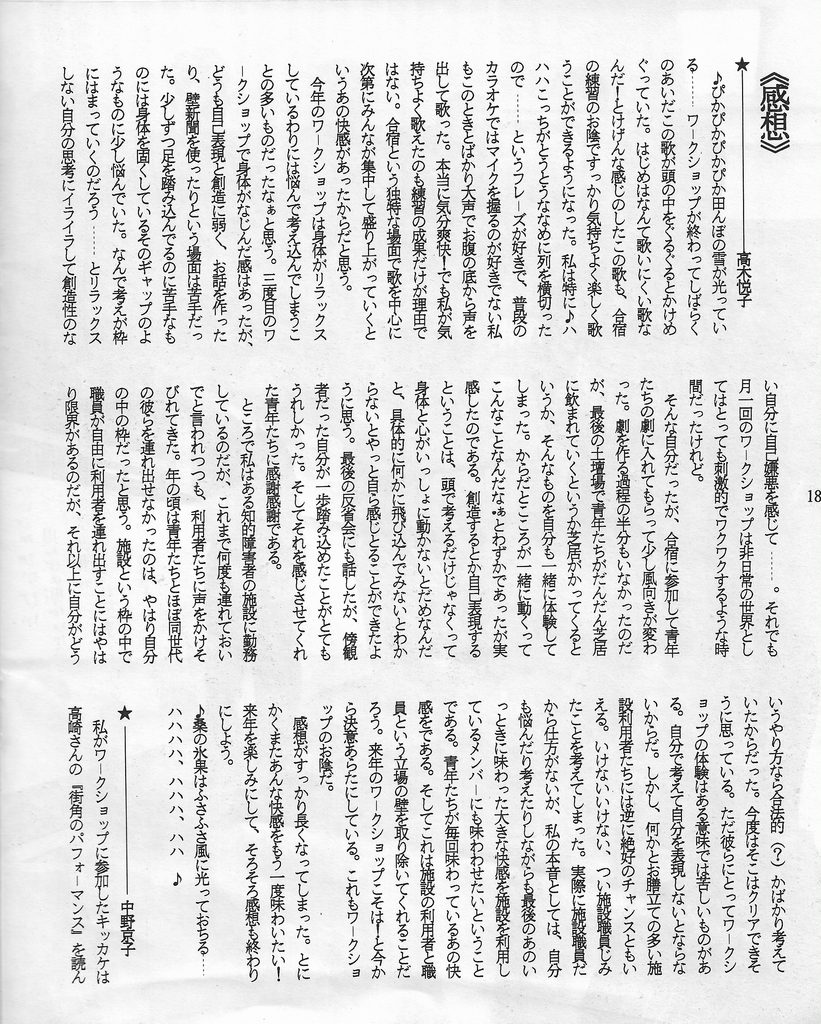 《感想》
★――――――高木悦子
♪ぴかぴかぴかぴか田んぼの雪が光ってい
る…… ワークショップが終わってしばらく
のあいだこの歌が頭の中をぐるぐるとかけめ
ぐっていた。はじめはなんて歌いにくい歌な
んだ!とけげんな感じのしたこの歌も、合宿
の練習のお陰ですっかり気持ちよく楽しく歌
うことができるようになった。私は特に♪ハ
ハハこっちがとうとうななめに列を横切った
ので…… というフレーズが好きで、普段の
カラオケではマイクを握るのが好きでない私
もこのときとばかり大声でお腹の底から声を
出して歌った。本当に気分爽快!でも私が気
持ちよく歌えたのも練習の成果だけが理由で
はない。合宿という独特な場面で歌を中心に
次第にみんなが集中して盛り上がっていくと
いうあの快感があったからだと思う。
今年のワークショップは身体がリラックス
しているわりには悩んで考え込んでしまうこ
との多いものだったなぁと思う。三度目のワ
ークショップで身体がなじんだ感はあったが、
どうも自己表現と創造に弱く、お話を作った
り、壁新聞を使ったりという場面は苦手だっ
た。少しずつ足を踏み込んでるのに苦手なも
のには身体を固くしているそのギャップのよ
うなものに少し悩んでいた。なんで考えが枠
にはまっていくのだろう…… とリラックス
しない自分の思考にイライラして創造性のな
い自分に自己嫌悪を感じて……。それでも
月一回のワークショップは非日常の世界とし
てはとっても刺激的でワクワクするような時
間だったけれど。
そんな自分だったが、合宿に参加して青年
たちの劇に入れてもらって少し風向きが変わ
った。劇を作る過程の半分もいなかったのだ
が、最後の土壇場で青年たちがだんだん芝居
に飲まれていくというか芝居がかってくると
いうか、そんなものを自分も一緒に体験して
しまった。からだとこころが一緒に動くって
こんなことなんだな・ぁとわずかであったが実
感したのである。創造するとか自己表現する
ということは、頭で考えるだけじゃなくって
身体と心がいっしょに動かないとだめなんだ
と、具体的に何かに飛び込んでみないとわか
らないとやっと自ら感じとることができたよ
うに思う。最後の反省会にも話したが、傍観
者だった自分が一歩踏み込めたことがとても
うれしかった。そしてそれを感じさせてくれ
た青年たちに感謝感謝である。
ところで私はある知的障害者の施設に勤務
しているのだが、これまで何度も連れておい
でと言われつつも、利用者たちに声をかけそ
びれてきた。年の頃は青年たちとほぼ同世代
の彼らを連れ出せなかったのは、やはり自分
の中の枠だったと思う。施設という枠の中で
職員が自由に利用者を連れ出すことにはやは
り限界があるのだが、それ以上に自分がどう
いうやり方なら合法的（?）かばかり考えて
いたからだった。今度はそこはクリアできそ
うに思っている。ただ彼らにとってワークシ
ョップの体験はある意味では苦しいものがあ
る。自分で考えて自分を表現しないとならな
いからだ。しかし、何かとお膳立ての多い施
設利用者たちには逆に絶好のチャンスともい
える。いけないいけない、つい施設職員じみ
たことを考えてしまった。実際に施設職員だ
から仕方がないが、私の本音としては、自分
も悩んだり考えたりしながらも最後のあのい
っときに味わった大きな快感を施設を利用し
ているメンバーにも味わわせたいということ
である。青年たちが毎回味わっているあの快
感をである。そしてこれは施設の利用者と職
員という立場の壁を取り除いてくれることだ
ろう。来年のワークショップこそは!と今か
ら決意あらたにしている。これもワークショ
ップのお陰だ。
感想がすっかり長くなってしまった。とに
かくまたあんな快感をもう一度味わいたい!
来年を楽しみにして、そろそろ感想も終わり
にしよう。
♪桑の氷果はふさふさ風に光っておちる……
ハハハハ、ハハハ、ハハ ♪
★――――――中野京子
私がワークショップに参加したキッカケは
高崎さんの『街角のパフォーマンス』を読ん
18